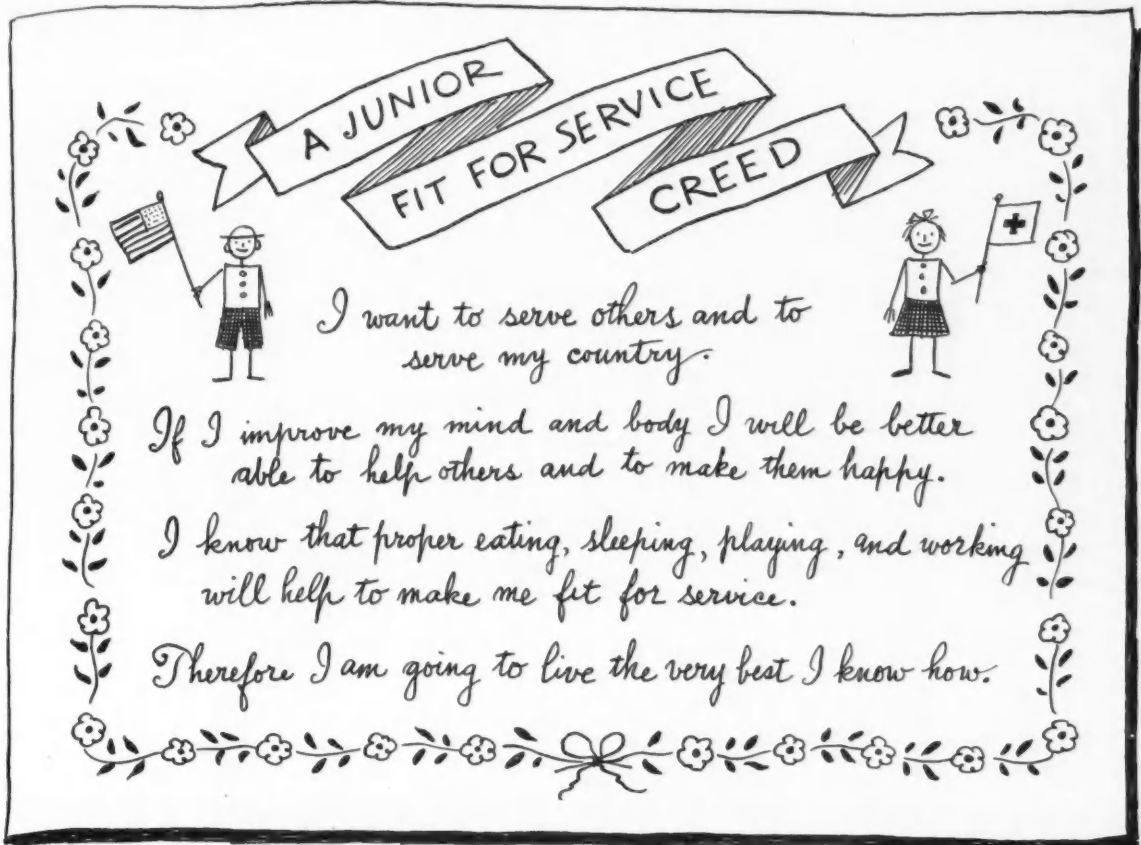 A JUNIOR
FIT FOR SERVICE
CREED
I want to serve others and to
serve my country.
If I improve my mind and body I will be better
able to help others and to make them happy.
I know that proper eating, sleeping, playing, and working
will help to make me fit for service.
Therefore I am going to live the very best I know how.